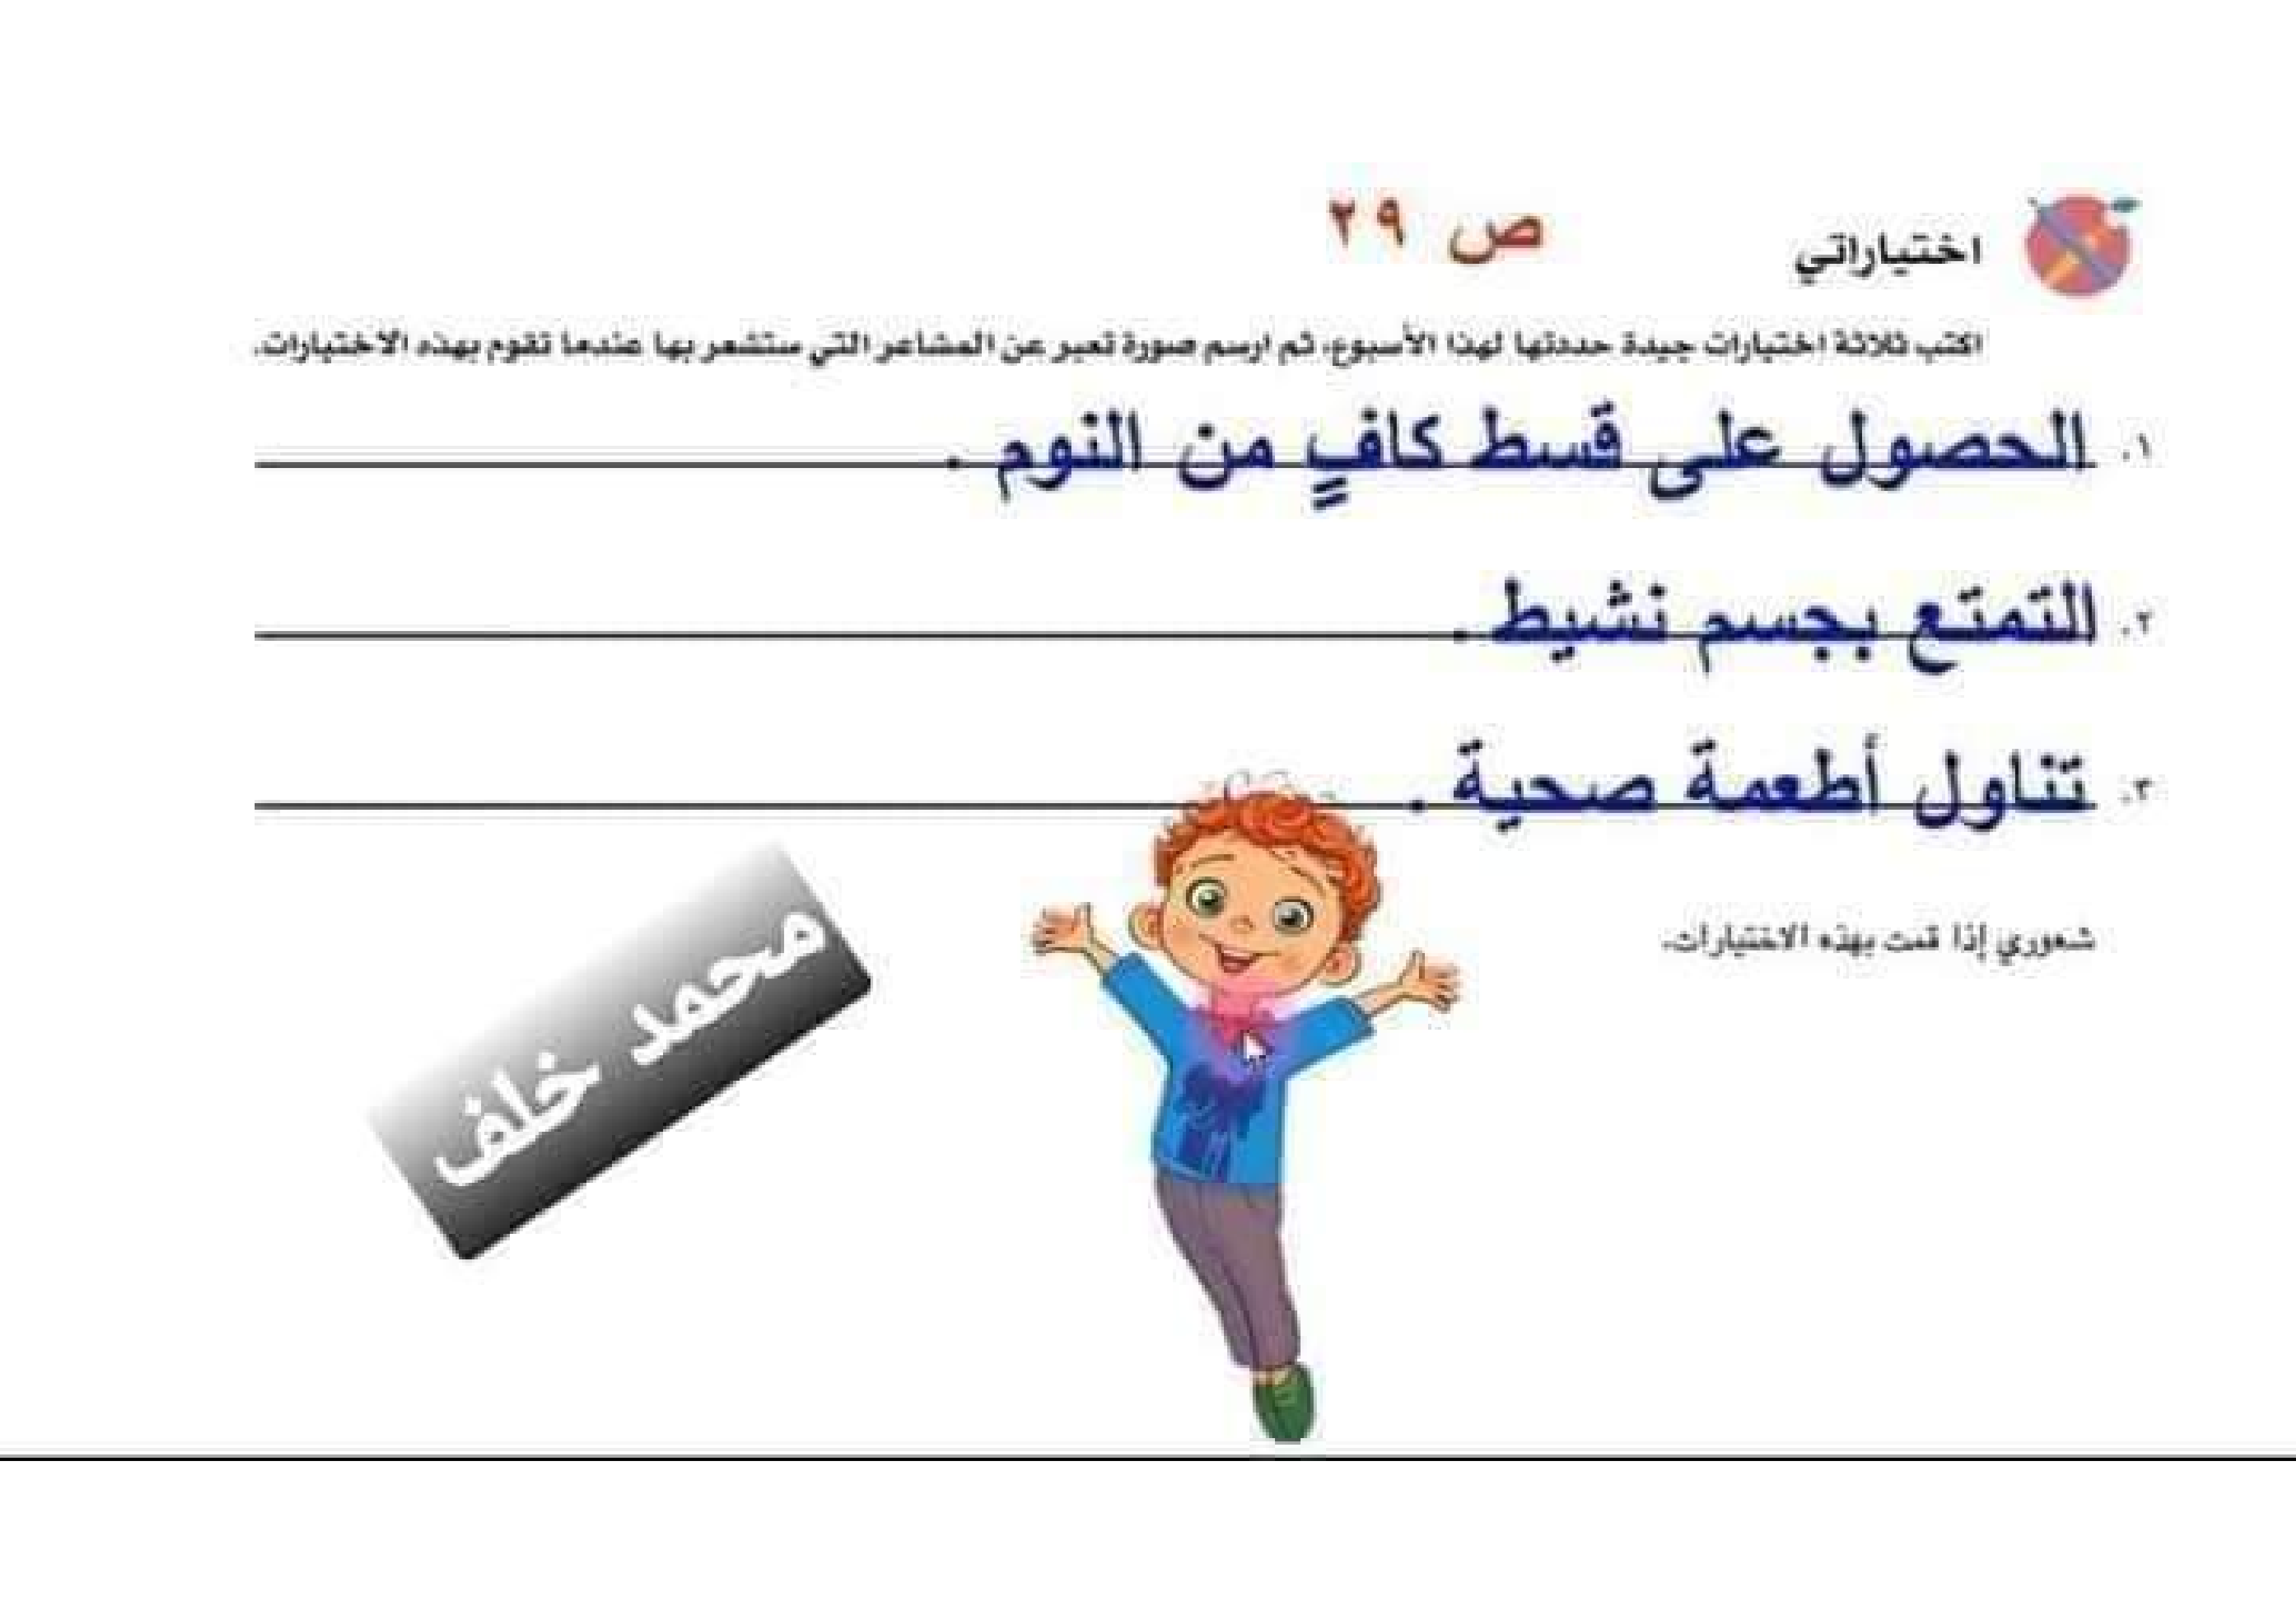 ص ٢٩
اختياراتي
اكتب ثلاثة اختيارات جيدة حددتها لهذا الأسبوع، ثم ارسم صورة تعبر عن المشاعر التي ستشعر بها عندما تقوم بهذه الاختيارات.
١. الحصول على قسط كافٍ من النوم .
٢. التمتع بجسم نشيط .
٣. تناول أطعمة صحية .
شعوري إذا قمت بهذه الاختيارات.
محمد خلف